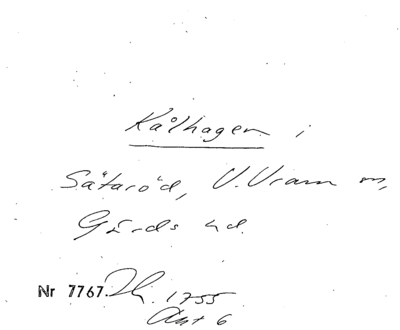 Kålhagen i
Sätaröd, V. Vram sn,
Gärds hd.
Nr 7767. 1755
Akt 6